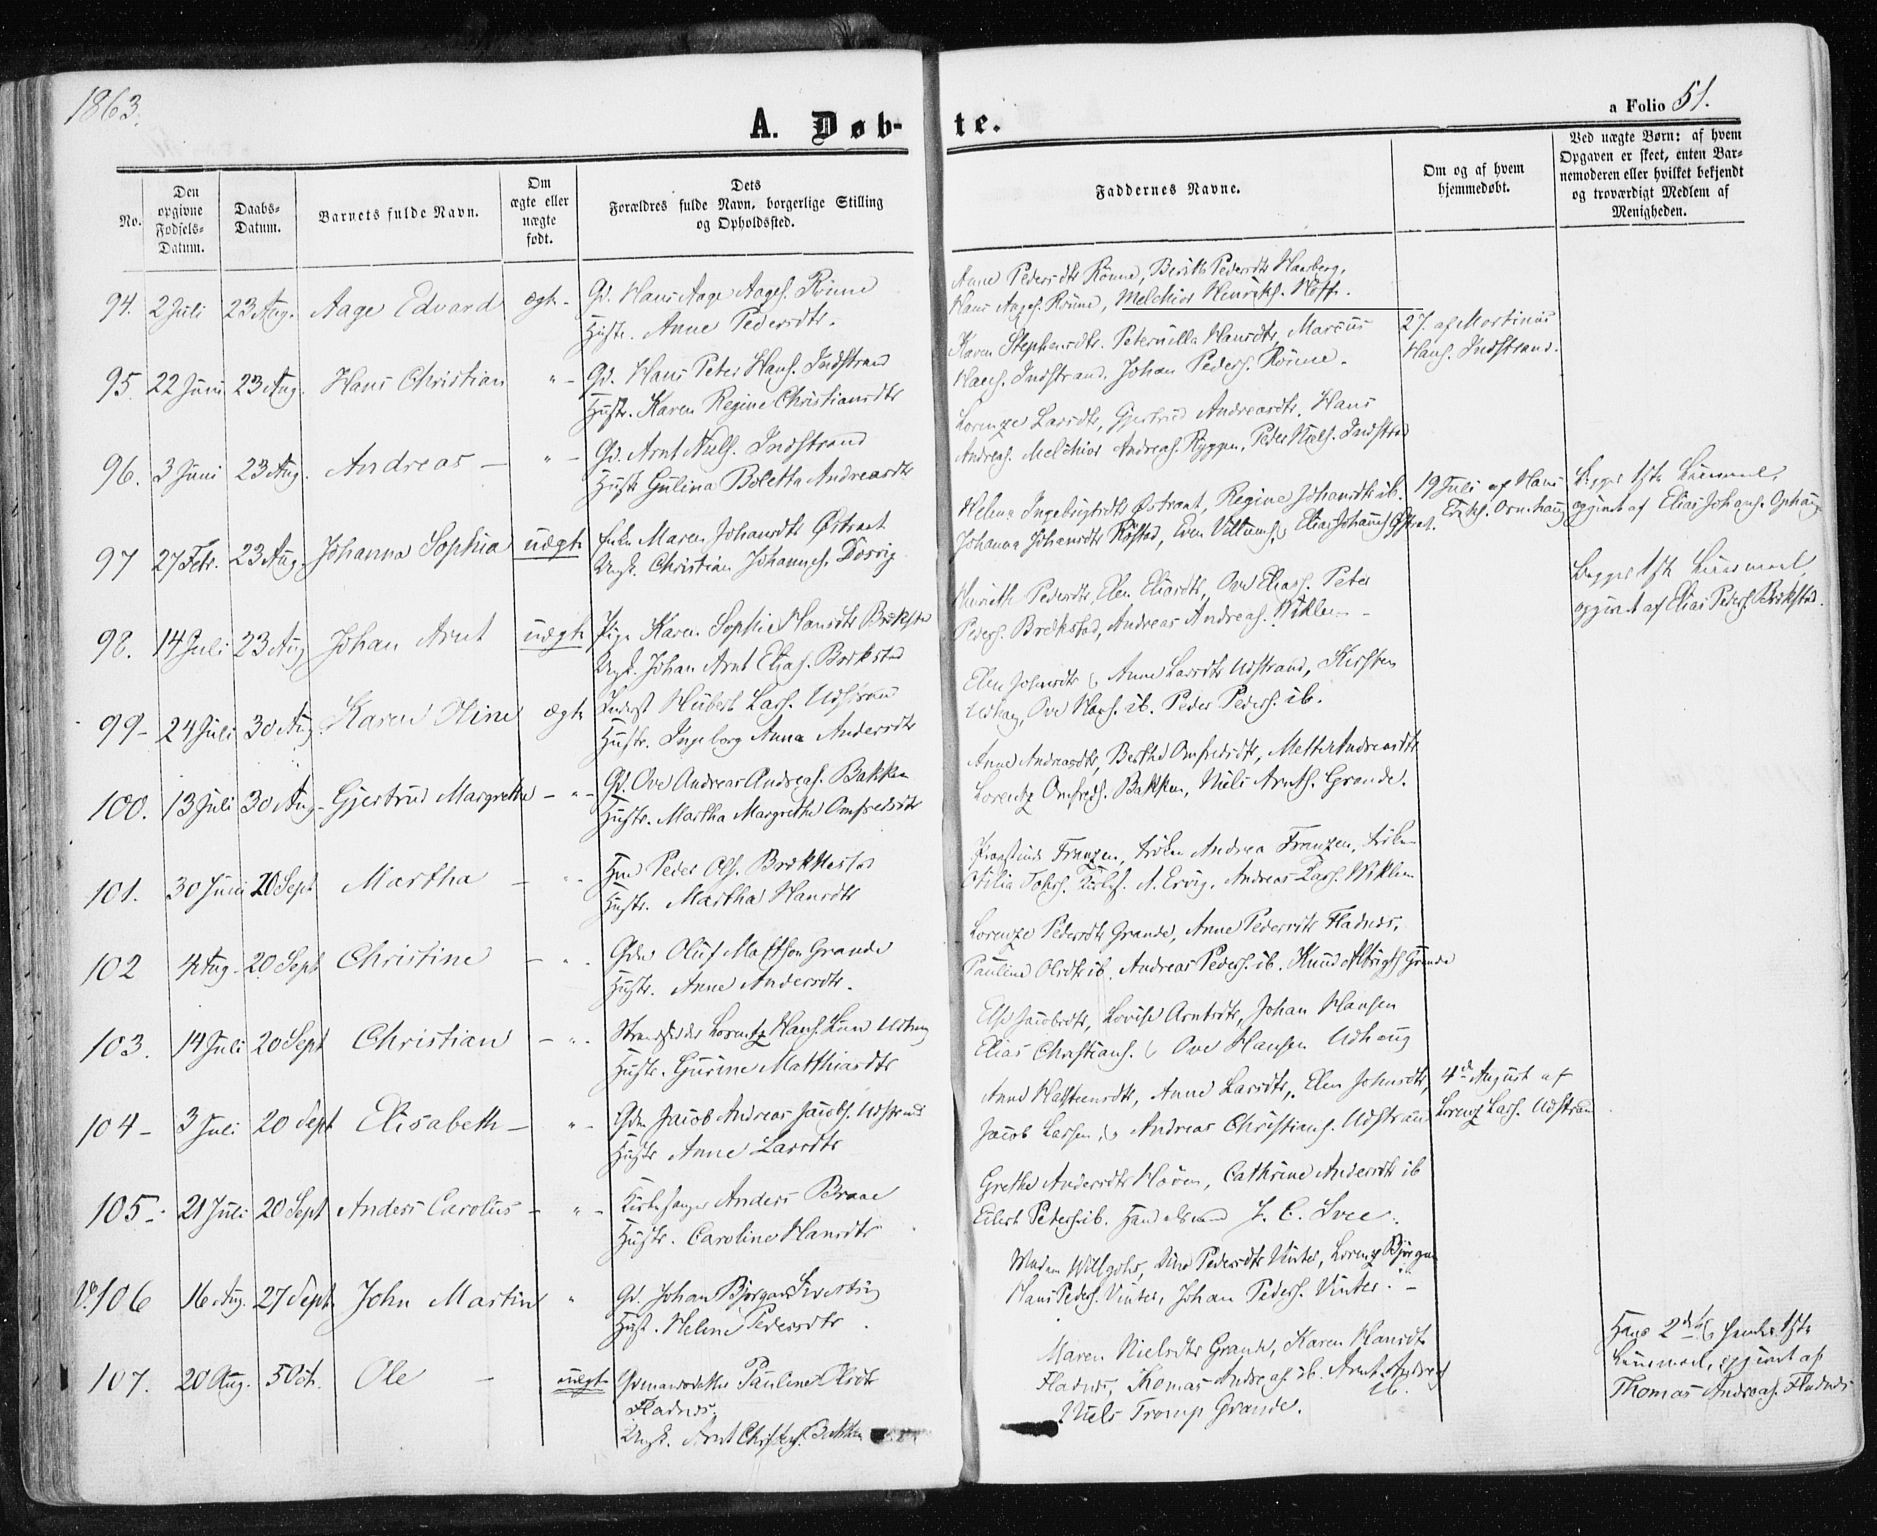 1863.
A. Døb-
te.
a Folio 51.
No.
Den opgivne Fødsels-Datum.
Daabs-Datum.
Barnets fulde Navn.
Om ægte eller uægte født.
Dets Forældres fulde Navn, borgerlige Stilling og Opholdssted.
Faddernes Navne.
Om og af hvem hjemmedøbt.
Ved uægte Børn: af hvem Opgaven er skeet, enten Barnemoderen eller hvilket bekjendt og troværdigt Medlem af Menigheden.
94. 2 Juli 23 Aug. Aage Edvard ægte Gd. Hans Aage Aages. Rönne
Hustr. Anne Pedersdtr.
Anne Pedersdtr Rönne, Berith Pedersdtr Hauberg,
Hans Aages. Rönne, Melchior Henriks. Hoff.
95. 22 Juni 23 Aug. Hans Christian " - Gd. Hans Peter Hans. Indstrand
Hustr. Karen Regine Christiansdtr
Karen Stephensdtr. Peternilla Hansdtr, Marcus
Hans. Indstrand. Johan Peders. Rönne.
27. af Martinus
Hans. Indstrand.
96. 3 Juni 23 Aug. Andreas - " - Gd. Arnt Niels. Indstrand
Hustr Gulina Boletta Andreasdtr
Lorenze Larsdtr, Gjertrud Andreasdtr. Hans
Andreas. Melchior Andreas. Ryggen, Peder Niels. Indstrand
97 27 Febr. 23 Aug. Johanna Sophia uægte Enke Maren Johansdtr Østraat
Ungk. Christian Johannes. Dosvig
Helena Ingebrigtsdtr Østraat, Regine Johansdtr ib.
Johanna Johansdtr Røstad, Even Villums. & Elias Johannes. Østraat.
19 Juli af Hans
Eriks. Ornehaug
Begges 1ste Leiermaal,
opgivet af Elias Johans. Ophaug
98. 14 Juli 23 Aug Johan Arnt uægte Pige Karen Sophie Hansdtr Brækstad
Ungk. Johan Arnt Elias. Brækstad
Henrikth Pedersdtr, Elen Eliasdtr, Ove Elias. Peter
Peders. Brækstad, Andreas Andreas. Viklem -
Begges 1ste Leiermaal,
opgivet af Elias Peders. Brækstad.
99 - 24 Juli 30 Aug Karen Oline ægte Inderst Hubert Lars. Udstrand
Hustr. Ingeborg Anna Andersdtr
Elen Johnsdtr & Anne Larsdtr Udstrand, Kirsten
Udhaug, Ove Hans. ib. Peder Peders. ib.
100. 13 Juli 30 Aug - Gjertrud Margrethe - " - Gd. Ove Andreas Andreas. Bakken
Hustr. Martha Margrethe Omfredsdtr
Anne Andreasdtr, Berthe Omfredsdtr, Mette Andreasdtr
Lorentz Omfreds. Bakken, Niels Arnts. Grande.
101. 30 Juni 20 Sept Martha - " - Hmd Peder Ols. Brækkestad
Hustr. Martha Hansdtr
Provstinde Franzen, Frøken Andrea Franzen, Frøken
Otilia A. Ervig, Andreas Lars. Viklem
102 4 Aug. 20 Sept Christine - " - Gdm Oluf Mathson Grande
Hustr. Anne Andersdtr.
Lorenze Pedersdtr Grande, Anne Pedersdtr Fladnes,
Pauline Olsdtr ib. Andreas Peders. ib. Knud Albrigts Grande
103. 14 Juli 20 Sept Christian - " - Strandsidder Lorentz Hans. Udhaug
Hustr. Gurine Matthiasdtr
Else Jacobsdtr, Lovise Arntsdtr, Johan Hansen
Elias Christians. & Ove Hansen Udhaug
104 - 3 Juli 20 Sept Elisabeth - " - Gdm Jacob Andreas Jacobs. Udstrand
Hustr Anne Larsdtr
Anne Hasteensdtr, Anne Larsdtr, Elen Johnsdtr,
Jacob Larsen, & Andreas Christians. Udstrand
4de August af
Lorenz Lars. Udstrand
105 - 21 Juli 20 Sept Anders Carolus - " - Kirkesanger Anders Braae
Hustr. Caroline Hansdtr
Grethe Andersdtr Hoven, Cathrine Andersdtr ib
Eilert Peters. ib. Handelsmand J. C. Svee.
No 106 16 Aug. 27 Sept John Martin " Gd. Johan Bjørgan
Hust. Heline Pedersdtr.
Madam Willgohs, Pedersdtr Vinter, Lorenz Bjørgan
Hans Peders. Vinter, Johan Peders. Vinter. -
107. 20 Aug. 5 Oct. Ole - uægte Gdmandsdatter Pauline Olsdtr
Fladnes,
Ungk. Arnt Christens. Bakken
Maren Nielsdtr Grande, Karen Hansdtr
Fladnes, Thomas Andreas. ib. Arnt Andreas
ib.
Niels Tromp Grande.
Hans 2det & hendes 1ste
Leiermaal, opgivet af
Thomas Andreas. Fladnes